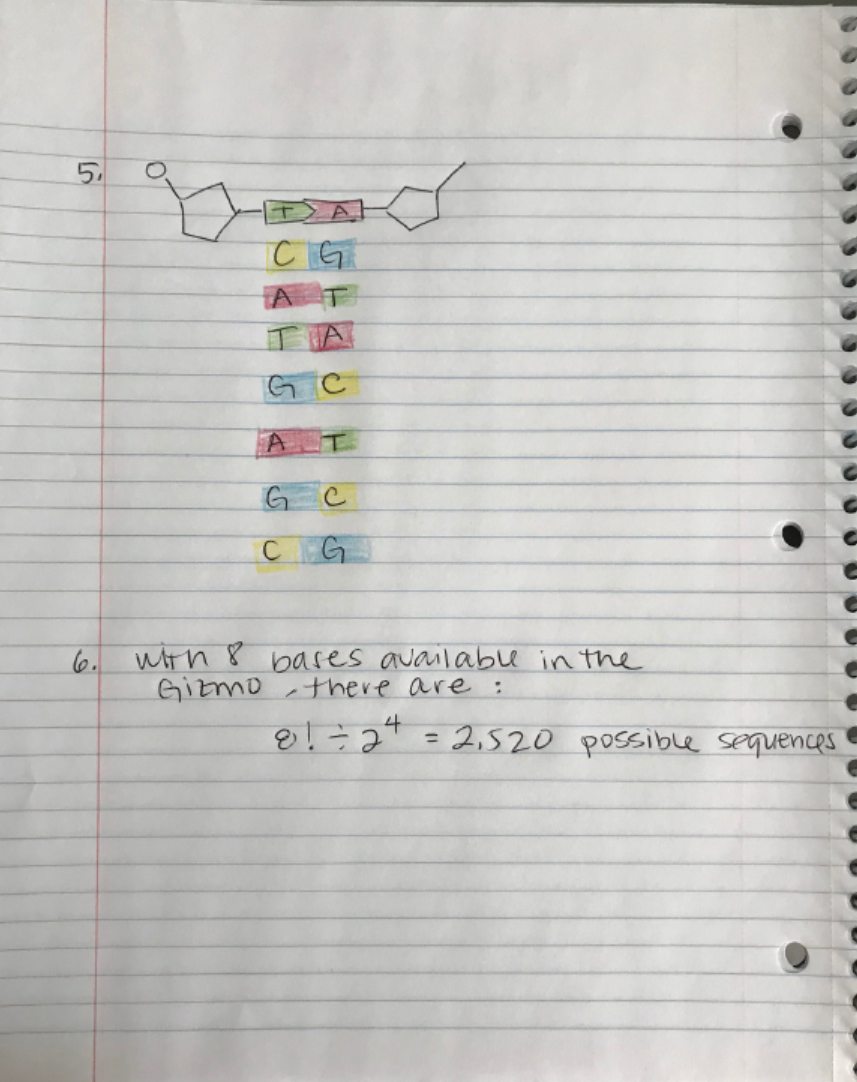 5.
T A
C G
A T
T A
G C
A T
G C
C G
6. With 8 bases available in the
Gizmo, there are :
8! ÷ 2^4 = 2,520 possible sequences